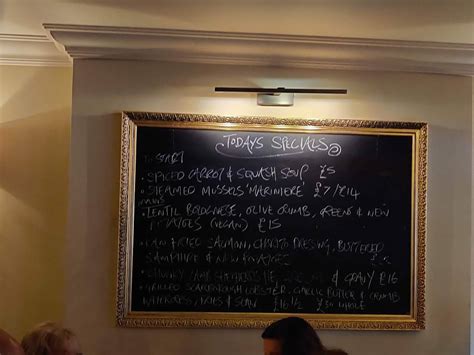 TODAYS SPECIALS
TO START
• SPICED CARROT & SQUASH SOUP £5
• STEAMED MUSSELS 'MARINIERE' £7/£14
MAINS
• LENTIL BOLOGNESE, OLIVE CRUMB, GREENS & NEW
POTATOES (VEGAN) £15
• PAN FRIED SALMON, DRESSING, BUTTERED
SAMPHIRE & NEW POTATOES
& GRAVY £16
• GRILLED SCARBOROUGH LOBSTER, GARLIC BUTTER &
£30 WHOLE